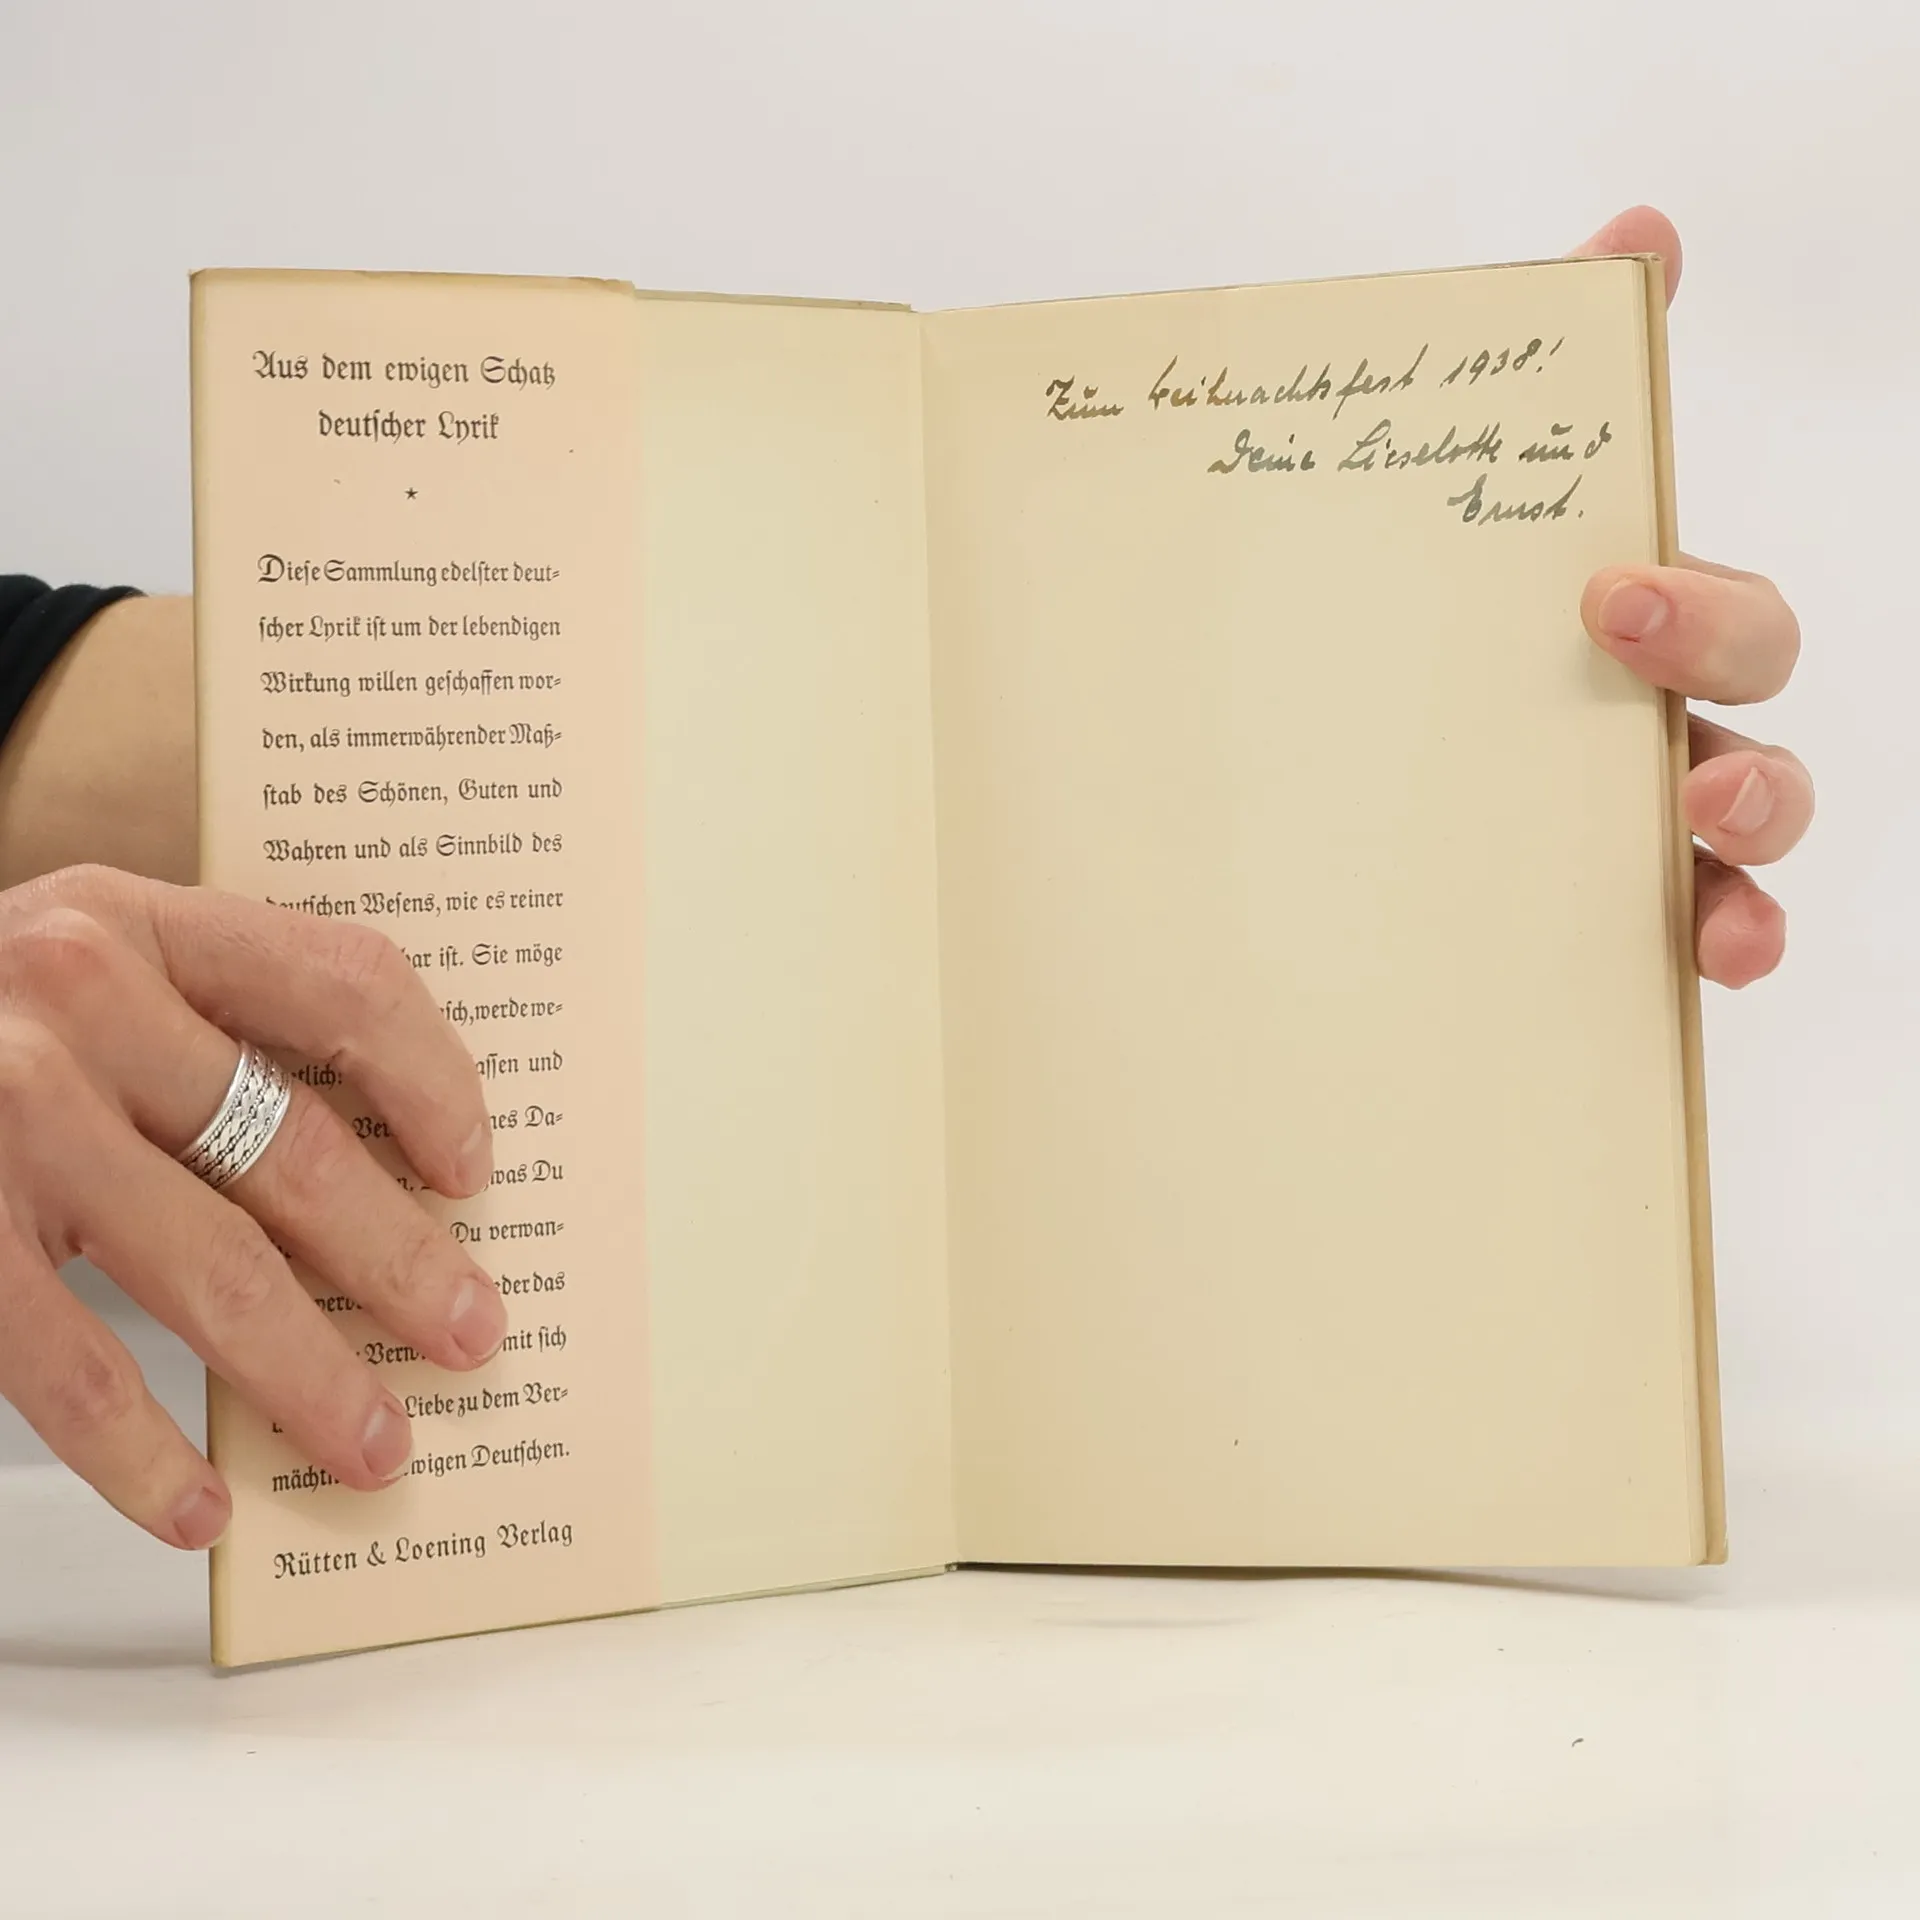 Aus dem ewigen Schatz
deutscher Lyrik
*
Diese Sammlung edelster deut-
scher Lyrik ist um der lebendigen
Wirkung willen geschaffen wor-
den, als immerwährender Maß-
stab des Schönen, Guten und
Wahren und als Sinnbild des
deutschen Wesens, wie es reiner
ist. Sie möge
werde we-
und
Da-
was Du
Du verwan-
das
mit sich
Liebe zu dem Ver-
ewigen Deutschen.
Rütten & Loening Verlag
Zum Weihnachtsfest 1938!
Deine Lieselotte und
Ernst.